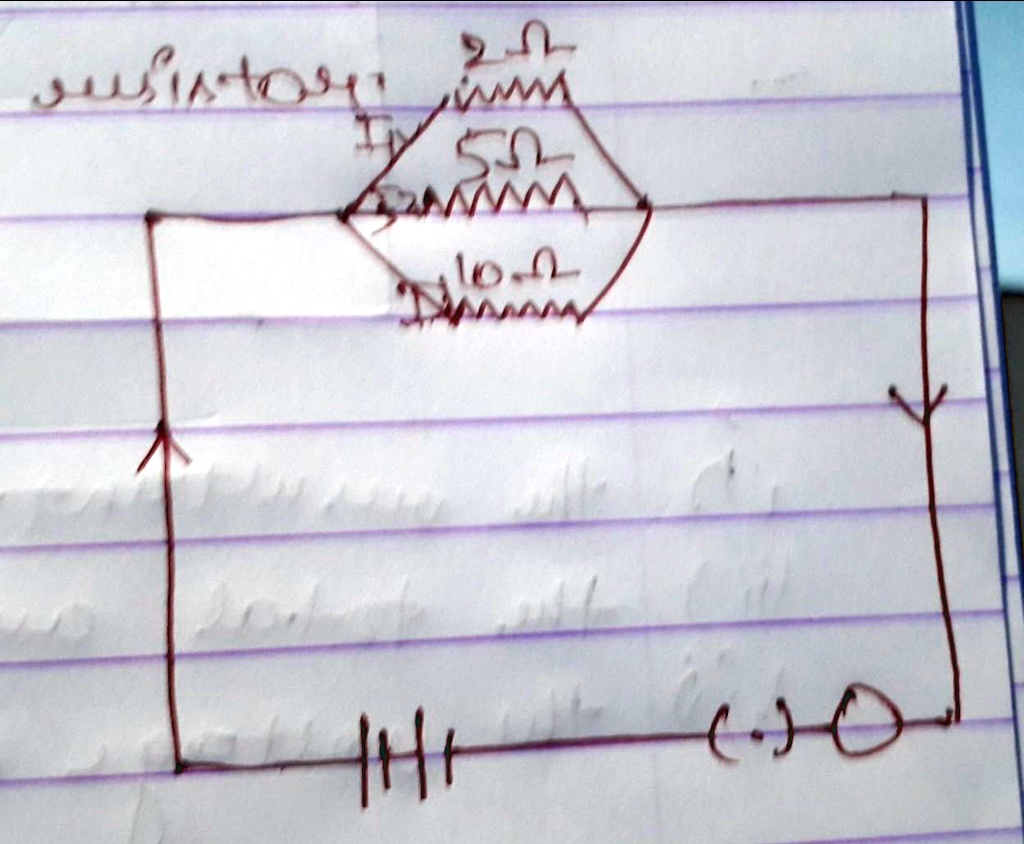 resistor:
2Ω
I₁
5Ω
I₂
10Ω